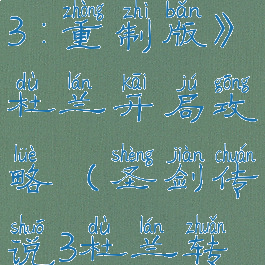 zhòng zhì bǎn
3：重制版》
dù lán kāi jú gōng
杜兰开局攻
lüè shèng jiàn chuán
略（圣剑传
shuō dù lán zhuǎn
说3杜兰转